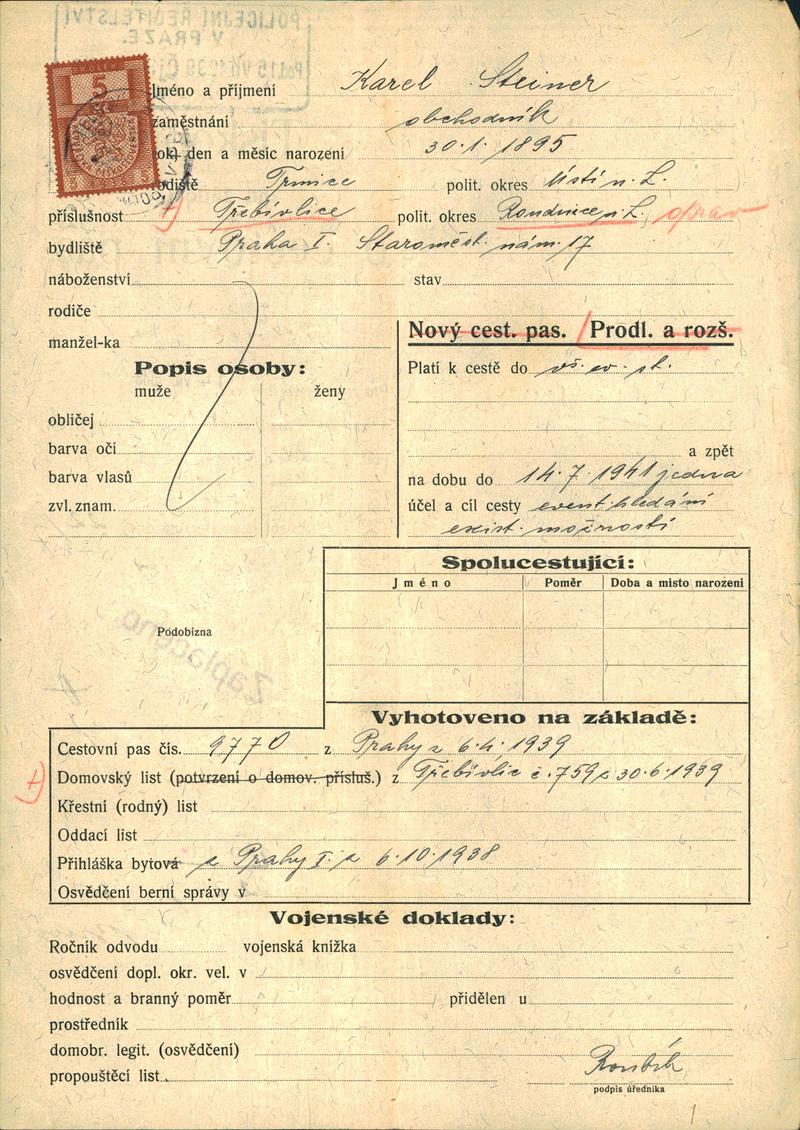 POLICEJNÍ ŘEDITELSTVÍ
V PRAZE.
5
Jméno a příjmení Karel Steiner
zaměstnání obchodník
rok, den a měsíc narození 30.1.1895
rodiště Trmice polit. okres Ústí n. L.
příslušnost Třebívlice polit. okres Roudnice n. L. oprav
bydliště Praha I. Staroměst. nám. 17
náboženství stav
rodiče
manžel-ka
Nový cest. pas. Prodl. a rozš.
Popis osoby:
muže ženy
obličej
barva očí
barva vlasů
zvl. znam.
Platí k cestě do vš. ev. st.
a zpět
na dobu do 14.7.1941 jedna
účel a cíl cesty event. hledání
exist. možností
Podobizna
Zaplaceno.
Spolucestující:
Jméno Poměr Doba a místo narození
Vyhotoveno na základě:
Cestovní pas čís. 9770 z Prahy z 6.4.1939
Domovský list (potvrzení o domov. přísluš.) z Třebívlic č. 759 z 30.6.1939
Křestní (rodný) list
Oddací list
Přihláška bytová z Prahy I. z 6.10.1938
Osvědčení berní správy v
Vojenské doklady:
Ročník odvodu vojenská knížka
osvědčení dopl. okr. vel. v
hodnost a branný poměr přidělen u
prostředník
domobr. legit. (osvědčení)
propouštěcí list
podpis úředníka
1